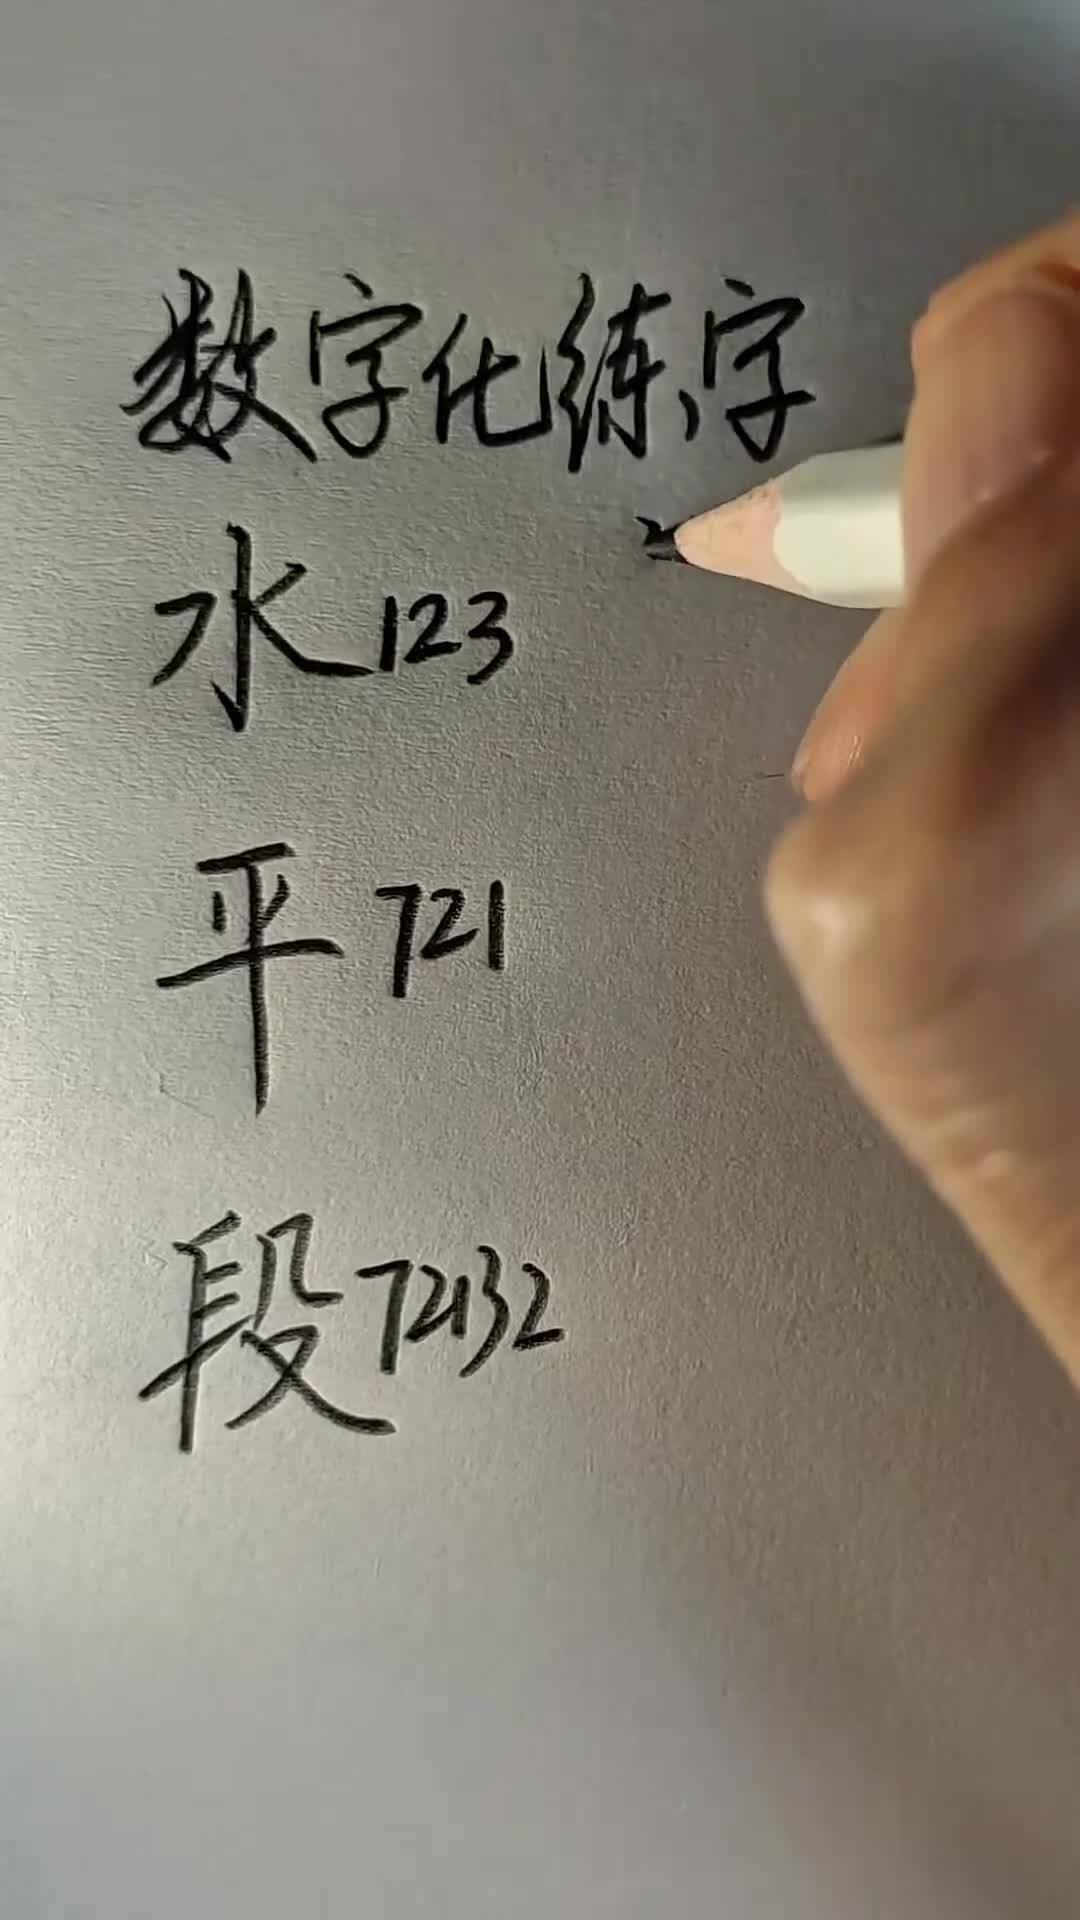 数字化练字
水123
平721
段72132